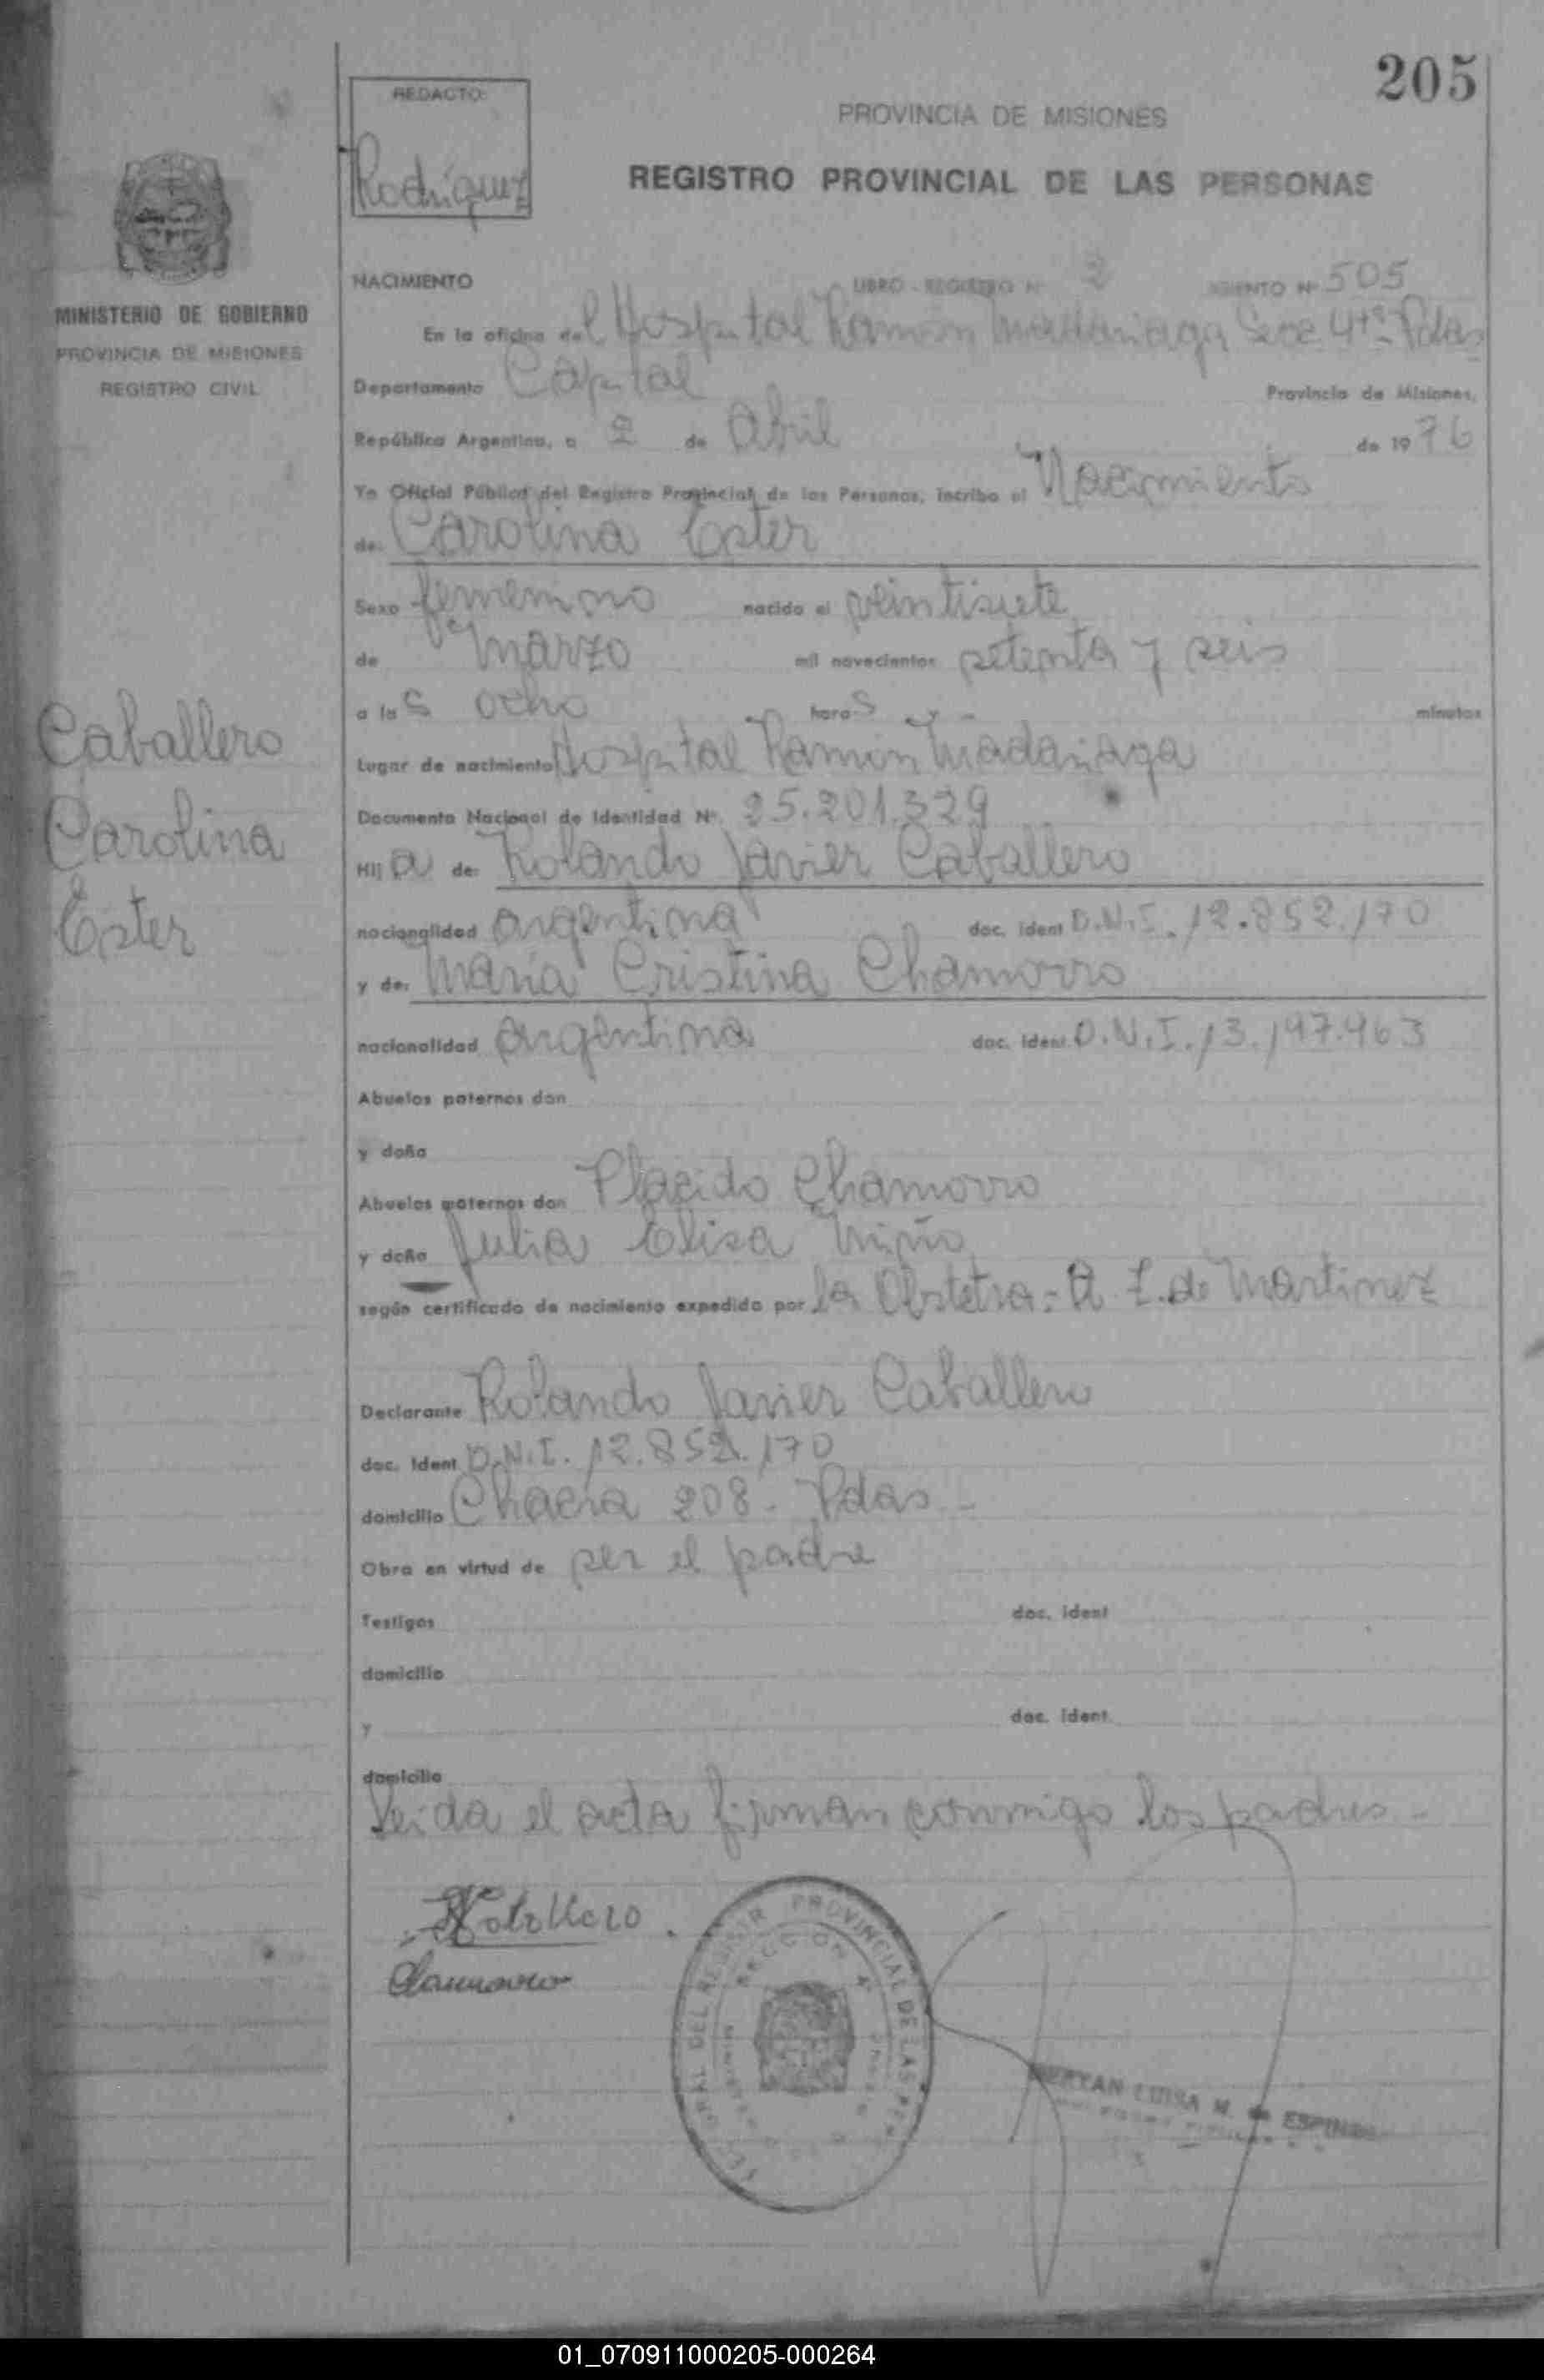 205
REDACTO:
Rodríguez
PROVINCIA DE MISIONES
REGISTRO PROVINCIAL DE LAS PERSONAS
MINISTERIO DE GOBIERNO
PROVINCIA DE MISIONES
REGISTRO CIVIL
NACIMIENTO LIBRO - REGISTRO Nº 2 ASIENTO Nº 505
En la oficina del Hospital Ramón Madariaga Secc 4ta Pdas
Departamento Capital Provincia de Misiones,
República Argentina, a 2 de Abril de 1976
Yo Oficial Público del Registro Provincial de las Personas, incribo el Nacimiento
de: Carolina Ester
Sexo femenino nacido el veintisiete
de Marzo mil novecientos setenta y seis
a las ocho horas y - minutos
Lugar de nacimiento Hospital Ramón Madariaga
Documento Nacional de Identidad Nº. 25.201.329
Hija de: Rolando Javier Caballero
nacionalidad argentina doc. ident D.N.I. 12.852.170
y de: María Cristina Chamorro
nacionalidad argentina doc. ident. D.N.I. 13.197.963
Caballero
Carolina
Ester
Abuelos paternos don
y doña
Abuelos maternos don Placido Chamorro
y doña Julia Elisa Miño
según certificado de nacimiento expedido por la Obstetra: A. Z. de Martinez
Declarante Rolando Javier Caballero
doc. ident D.N.I. 12.852.170
domicilio Chacra 208 - Pdas -
Obra en virtud de ser el padre
Testigos doc. ident
domicilio
y doc. ident.
domicilio
Leida el acta firman conmigo los padres -
Chamorro
PROVINCIAL DE LAS PER
SECCION 4
LUISA M. de ESPINDOLA
01_070911000205-000264